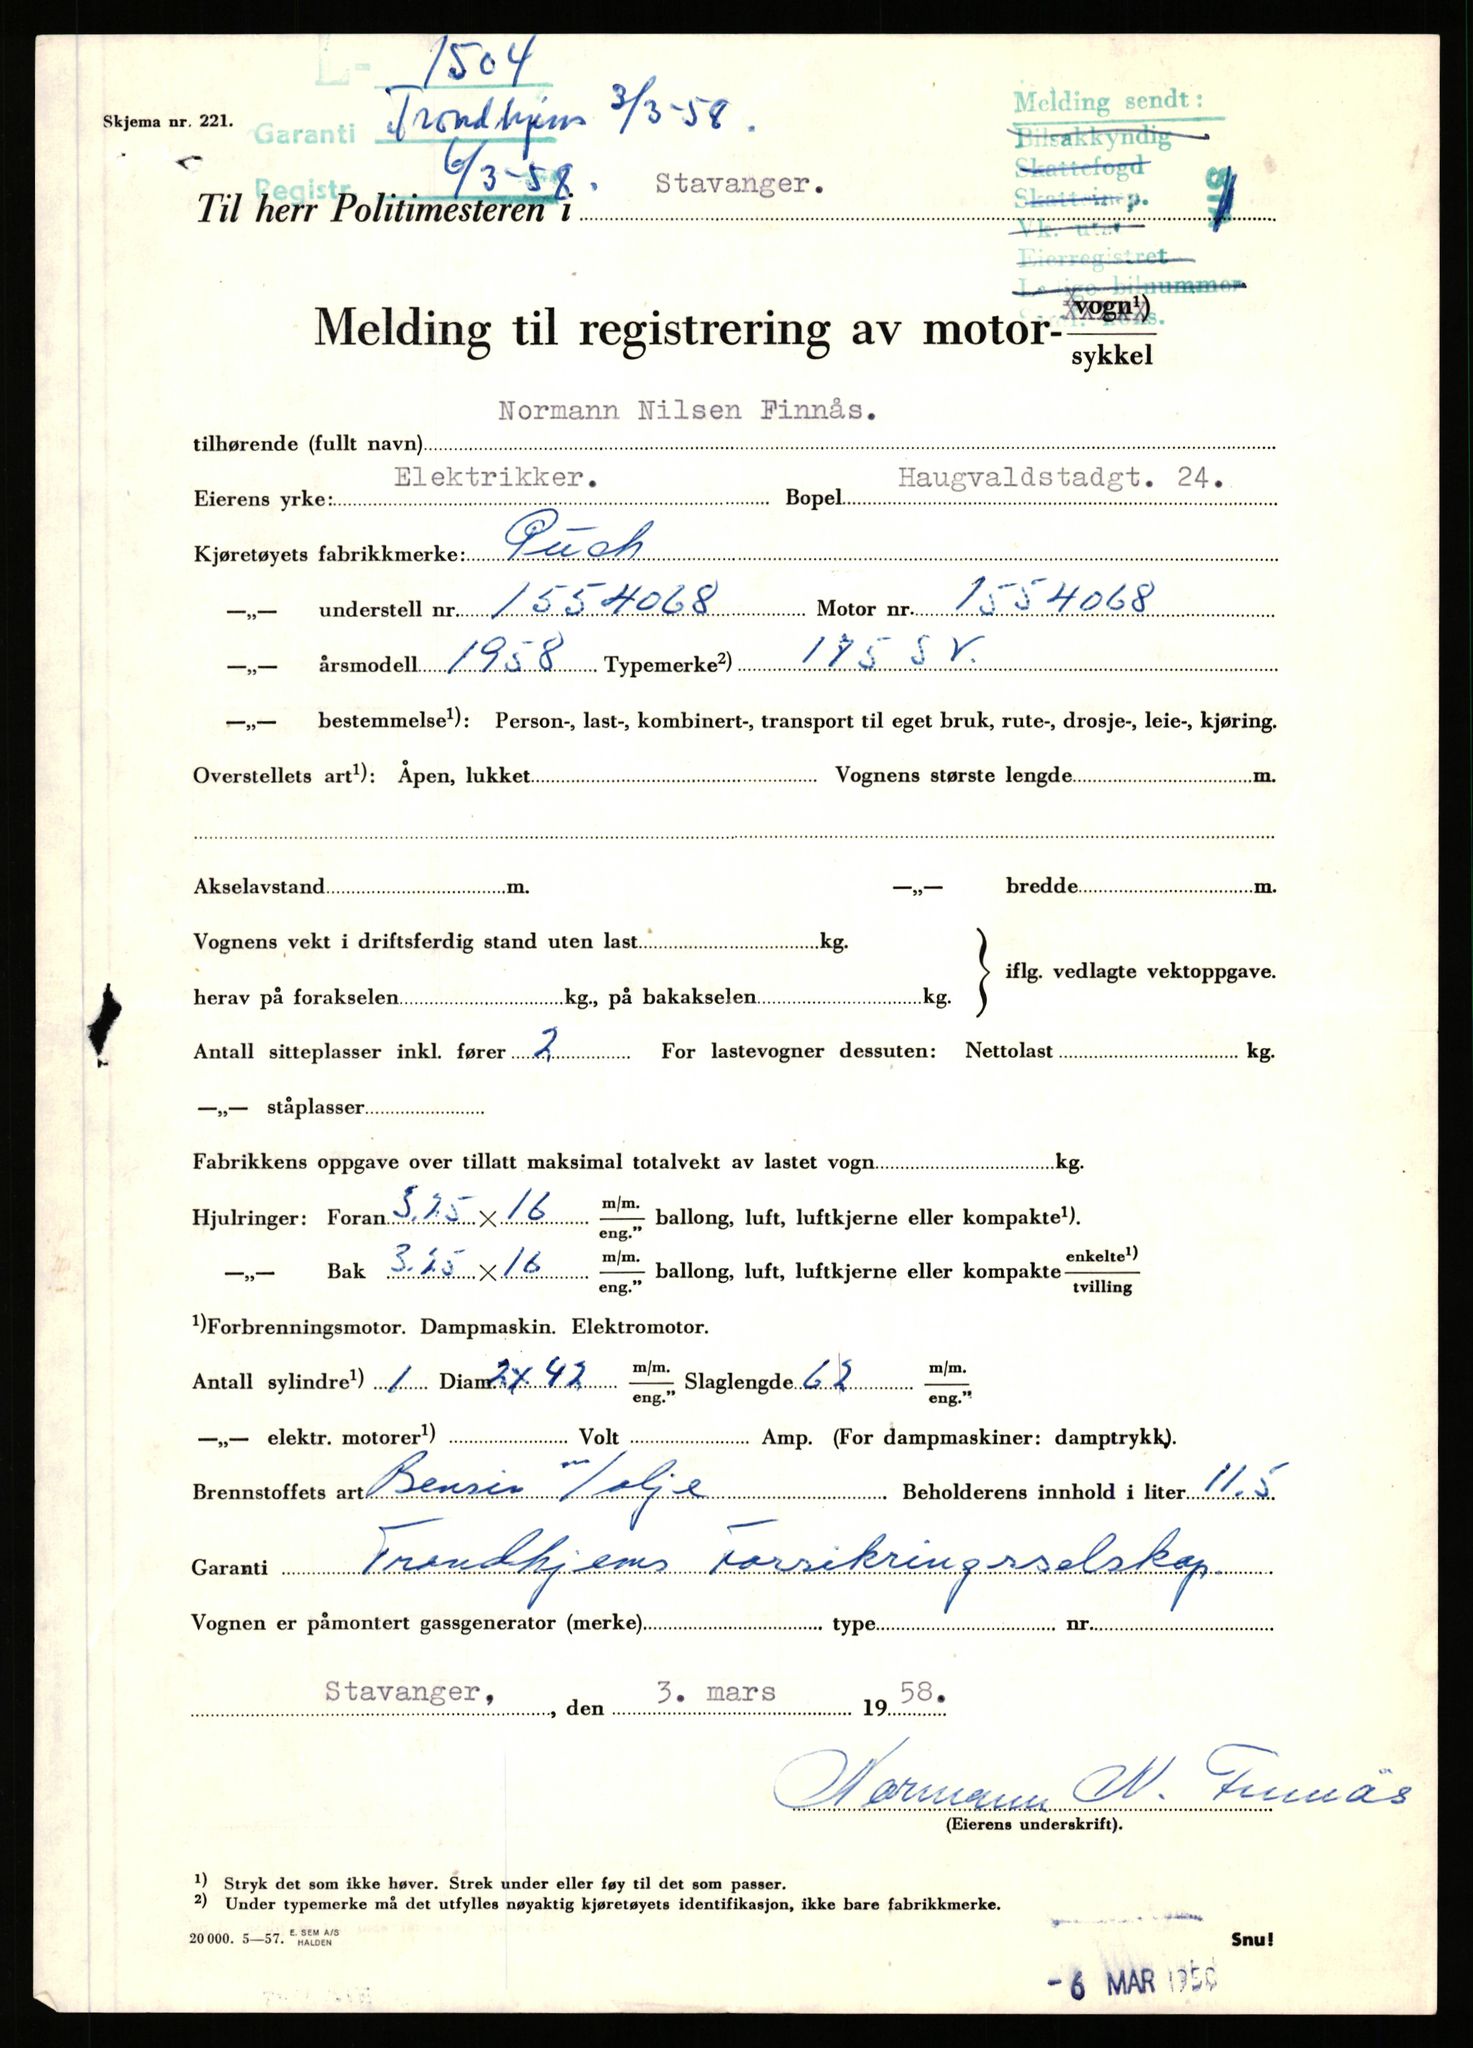 L- 1504
Skjema nr. 221.
Garanti Trondhjems 3/3-58.
Registr. 6/3-58.
Melding sendt:
Bilsakkyndig
Skattefogd
Skatteinsp.
Vk. utst
Eierregistret
Ledige bilnummer
Til herr Politimesteren i Stavanger.
Melding til registrering av motor- vogn¹)
sykkel
Normann Nilsen Finnås.
tilhørende (fullt navn)
Eierens yrke: Elektrikker. Bopel Haugvaldstadgt. 24.
Kjøretøyets fabrikkmerke: Puch
—„— understell nr. 1554068 Motor nr. 1554068
—„— årsmodell 1958 Typemerke²) 175 S V.
—„— bestemmelse¹): Person-, last-, kombinert-, transport til eget bruk, rute-, drosje-, leie-, kjøring.
Overstellets art¹): Åpen, lukket Vognens største lengde m.
Akselavstand m. —„— bredde m.
Vognens vekt i driftsferdig stand uten last kg.
iflg. vedlagte vektoppgave.
herav på forakselen kg., på bakakselen kg.
Antall sitteplasser inkl. fører 2 For lastevogner dessuten: Nettolast kg.
—„— ståplasser
Fabrikkens oppgave over tillatt maksimal totalvekt av lastet vogn kg.
Hjulringer: Foran 3.25 × 16 m/m. eng." ballong, luft, luftkjerne eller kompakte¹).
—„— Bak 3.25 × 16 m/m. eng." ballong, luft, luftkjerne eller kompakte enkelte¹) tvilling
¹)Forbrenningsmotor. Dampmaskin. Elektromotor.
Antall sylindre¹) 1 Diam. 2x42 m/m. eng." Slaglengde 62 m/m. eng."
—„— elektr. motorer¹) Volt Amp. (For dampmaskiner: damptrykk).
Brennstoffets art Bensin m/olje Beholderens innhold i liter 11.5
Garanti Trondhjems Forsikringsselskap.
Vognen er påmontert gassgenerator (merke) type nr.
Stavanger, , den 3. mars 19 58.
Normann N. Finnås
(Eierens underskrift).
¹) Stryk det som ikke høver. Strek under eller føy til det som passer.
²) Under typemerke må det utfylles nøyaktig kjøretøyets identifikasjon, ikke bare fabrikkmerke.
20 000. 5—57. E. SEM A/S HALDEN
Snu!
- 6 MAR 1958